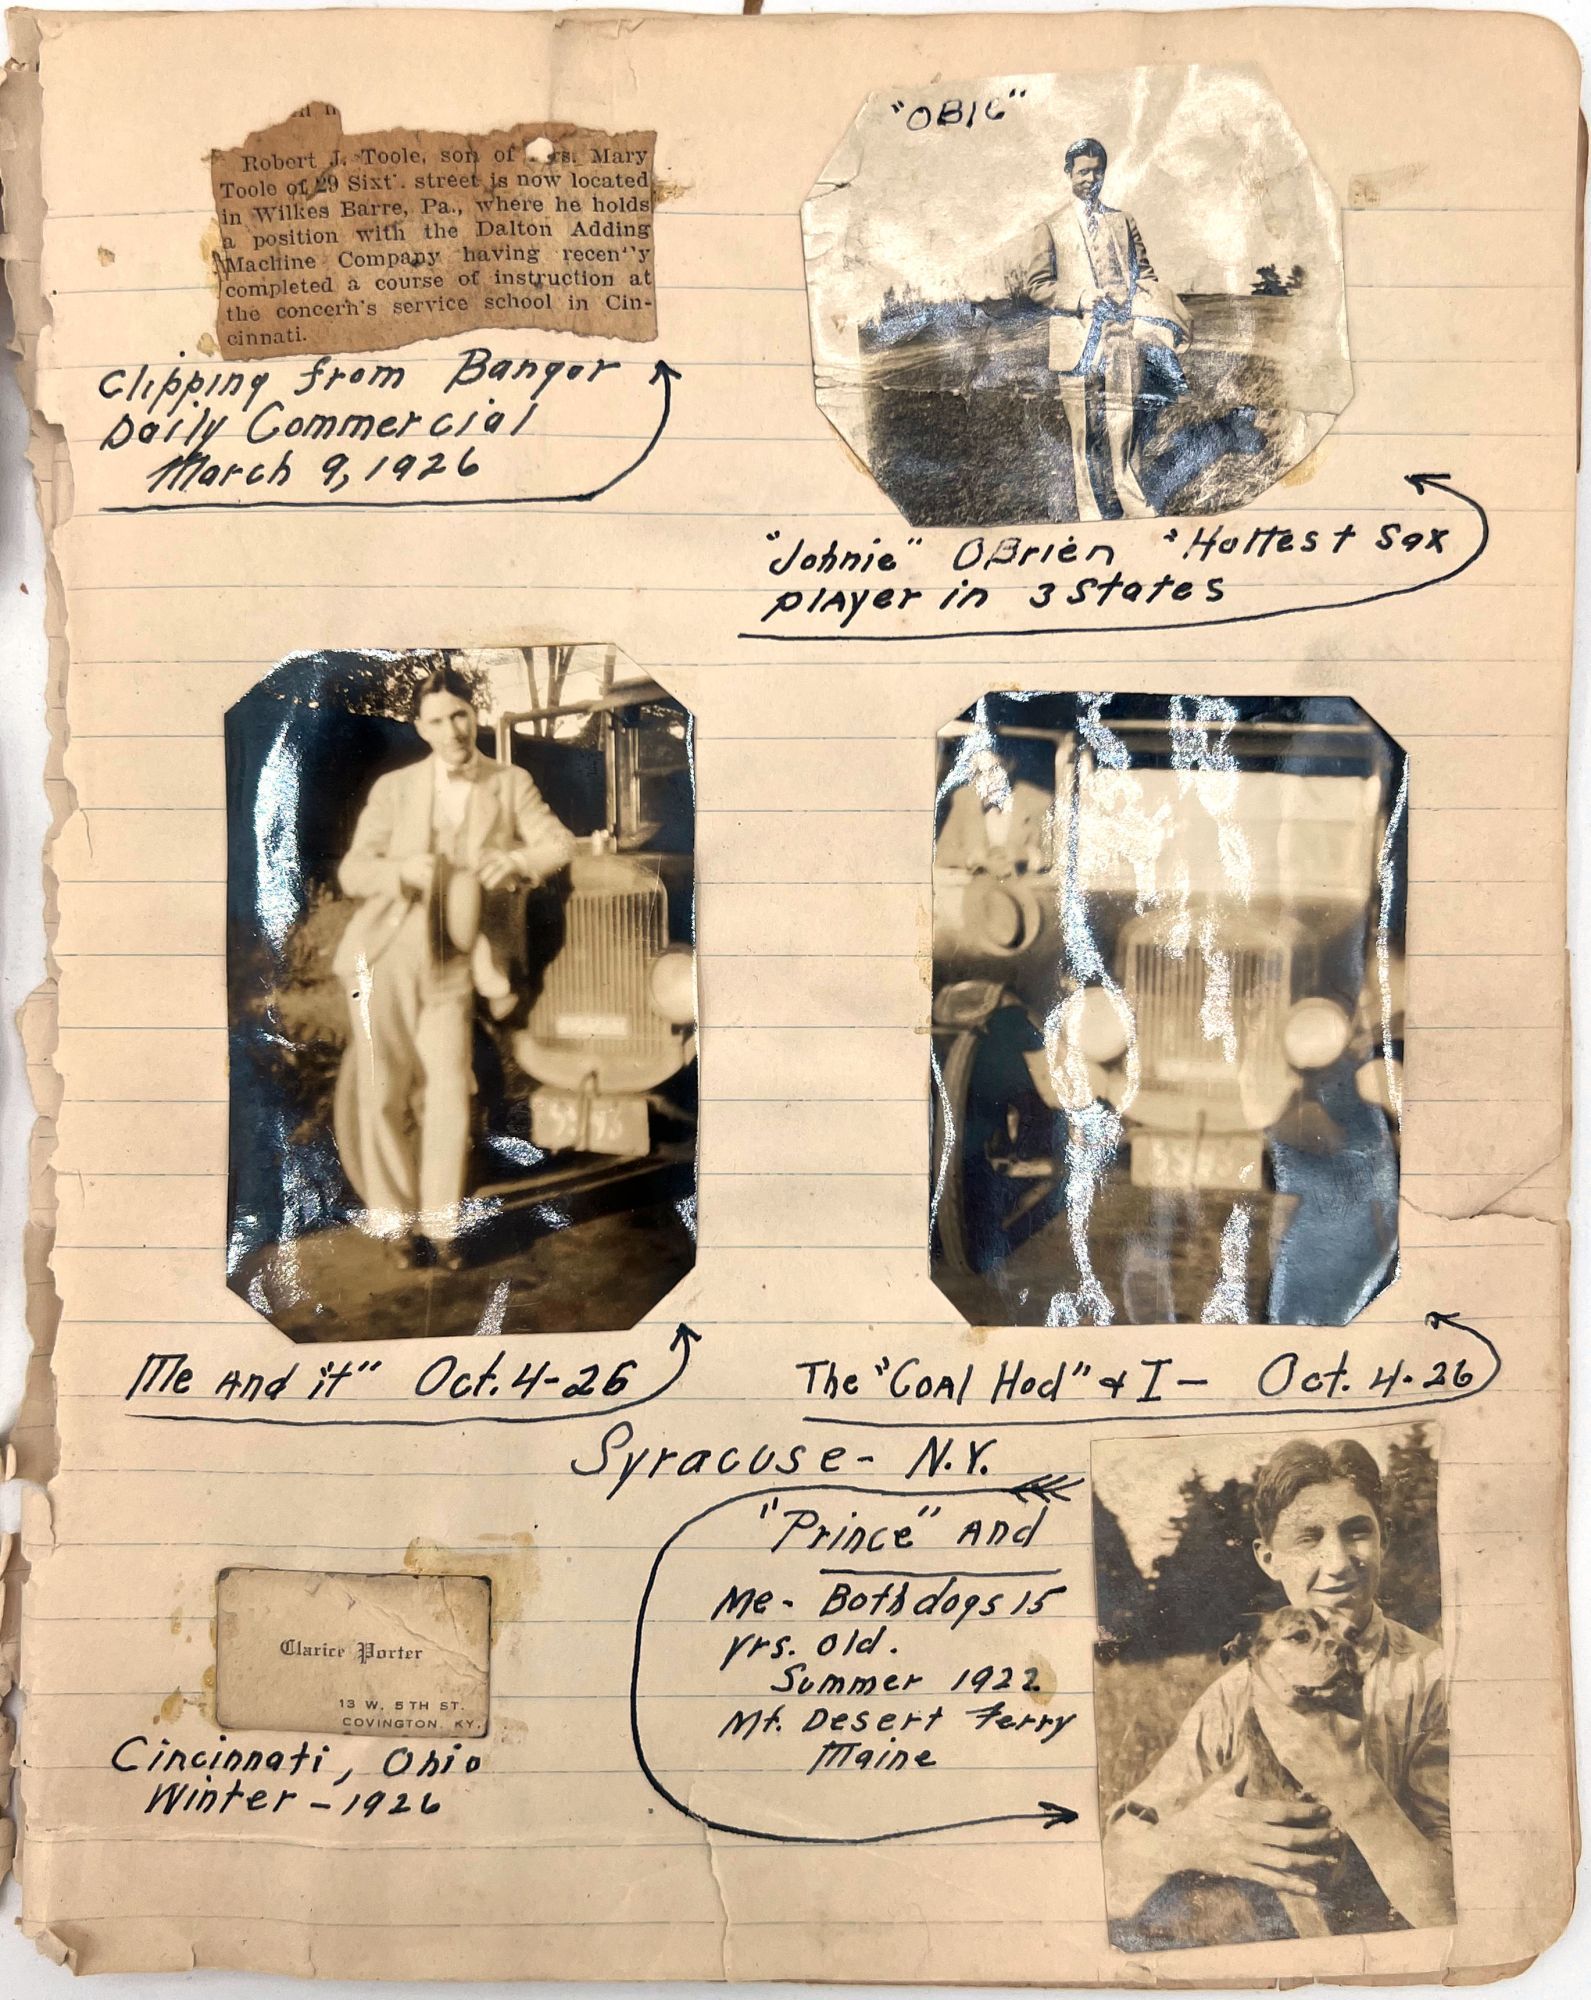 Robert J. Toole, son of Mary
Toole of 29 street is now located
in Wilkes Barre, Pa., where he holds
a position with the Dalton Adding
Machine Company having
completed a course of instruction at
the concern's service school in Cin-
cinnati.
Clipping from Bangor
Daily Commercial
March 9, 1926
"OBIE"
"Johnie" OBrien "Hottest Sax
player in 3 States
Me and "it" Oct. 4-26
The "Coal Hod" & I — Oct. 4-26
Syracuse - N.Y.
"Prince" and
Me - Both dogs 15
yrs. old.
Summer 1922
Mt. Desert Ferry
Maine
Clarice Porter
13 W. 5TH ST.
COVINGTON, KY.
Cincinnati, Ohio
Winter - 1926